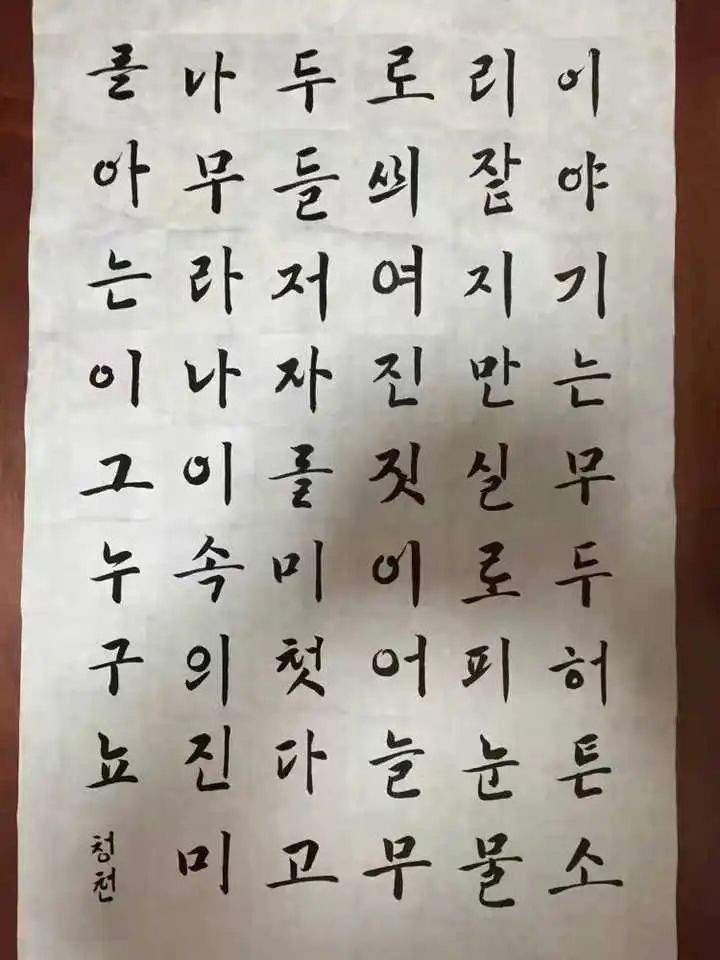 이야기는무두허튼소
리잩지만실로피눈물
로씌여진짓이어늘무
두들저자를미첫다고
나무라나이속의진미
를아는이그누구뇨
청천